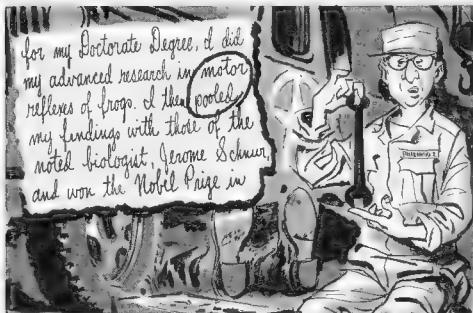 for my Doctorate Degree, I did
my advanced research in motor
reflexes of frogs. I then pooled
my findings with those of the
noted biologist, Jerome Schnur,
and won the Nobel Prize in